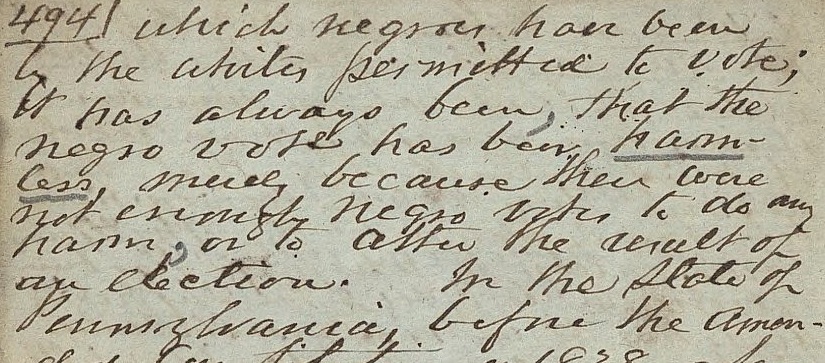 494 which negroes have been
by the whites permitted to vote;
it has always been, that the
negro vote has been harm-
less, merely because there were
not enough negro votes to do any
harm, or to alter the result of
an election. In the State of
Pennsylvania, before the amen-